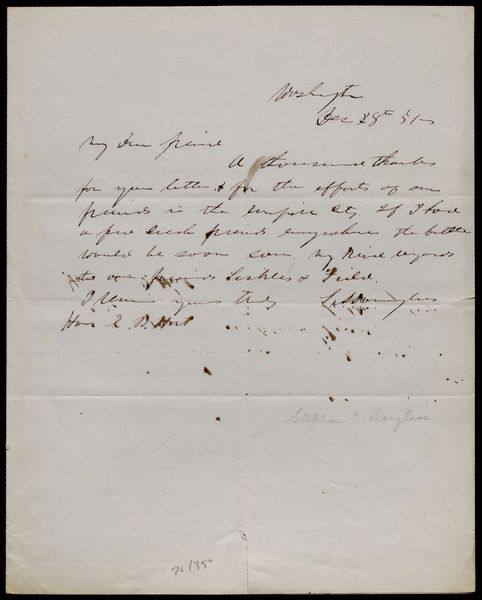 Washington
Dec 28th 51
My Dear friend
A thousand thanks
for your letter & for the efforts of our
friends in the empire City. If I had
a few such friends everywhere the battle
would be soon over. My kind regards
to our friends Sickles & Field.
I remain yours truly S. A. Douglas
Hon E. B. Hart
Stephen A. Douglass
20/350